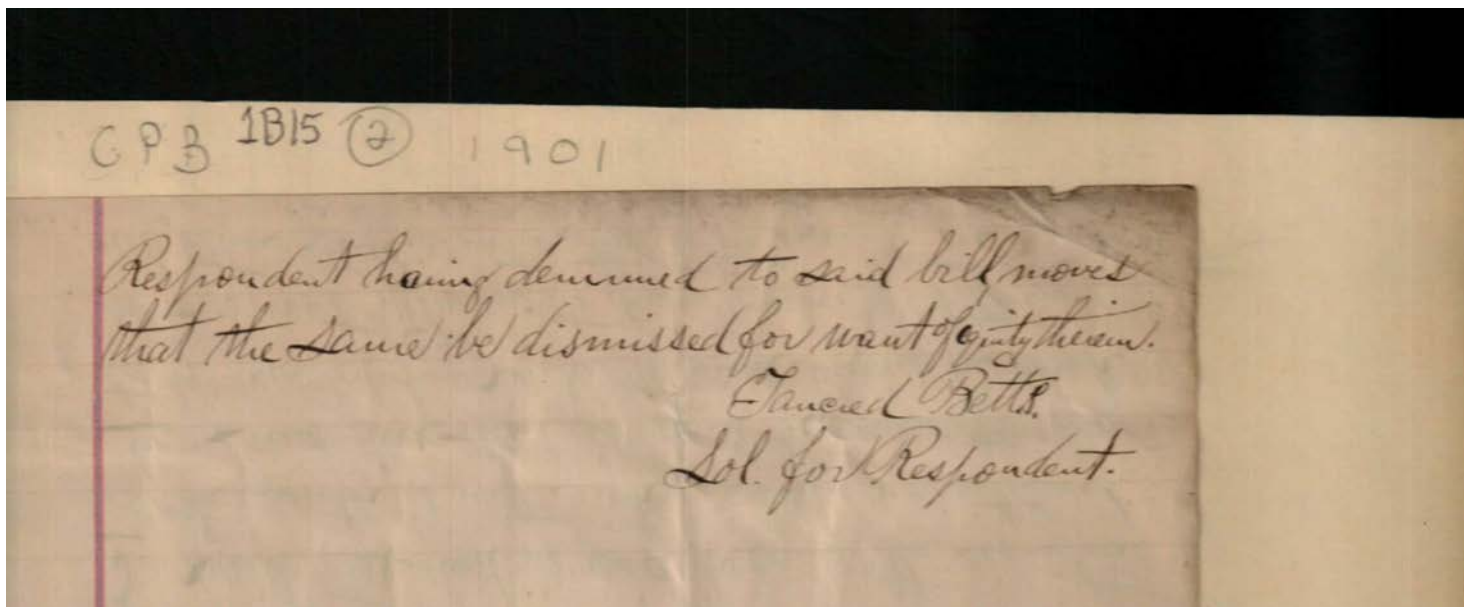 CPB 1B15 (2) 1901
Respondent having demurred to said bill, moves
that the same be dismissed for want of equity therein.
Tancred Betts.
Sol. for Respondent.